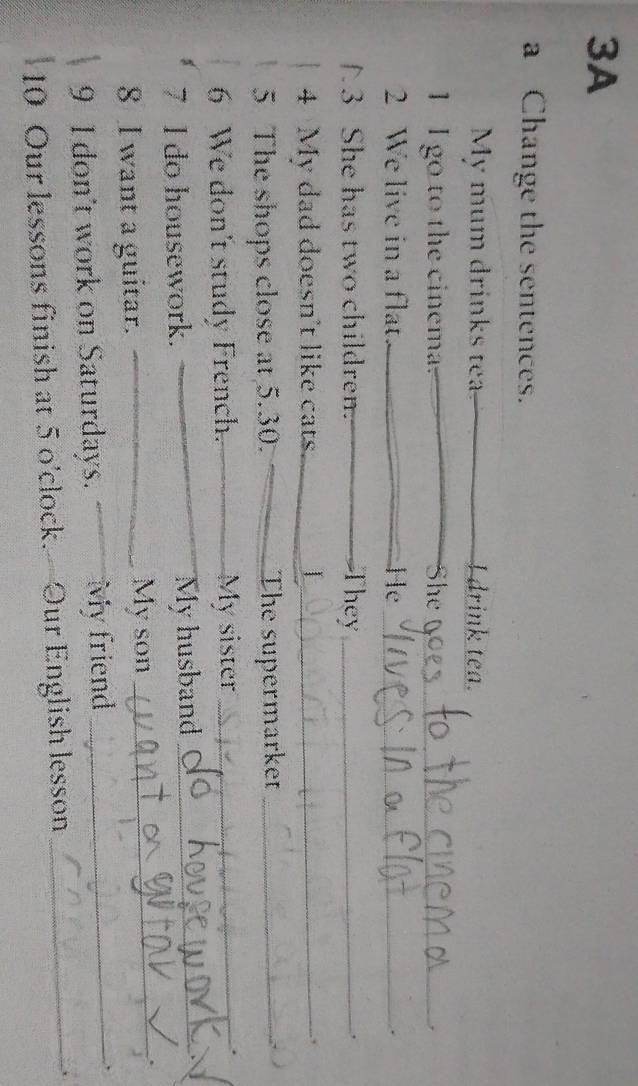 3A
a Change the sentences.
My mum drinks tea. I drink tea.
1 I go to the cinema. She goes to the cinema.
2 We live in a flat. He lives in a flat.
3 She has two children. They
4 My dad doesn't like cats. I
5 The shops close at 5.30. The supermarket
6 We don't study French. My sister
7 I do housework. My husband do housework.
8 I want a guitar. My son want a gutar.
9 I don't work on Saturdays. My friend
10 Our lessons finish at 5 o'clock. Our English lesson